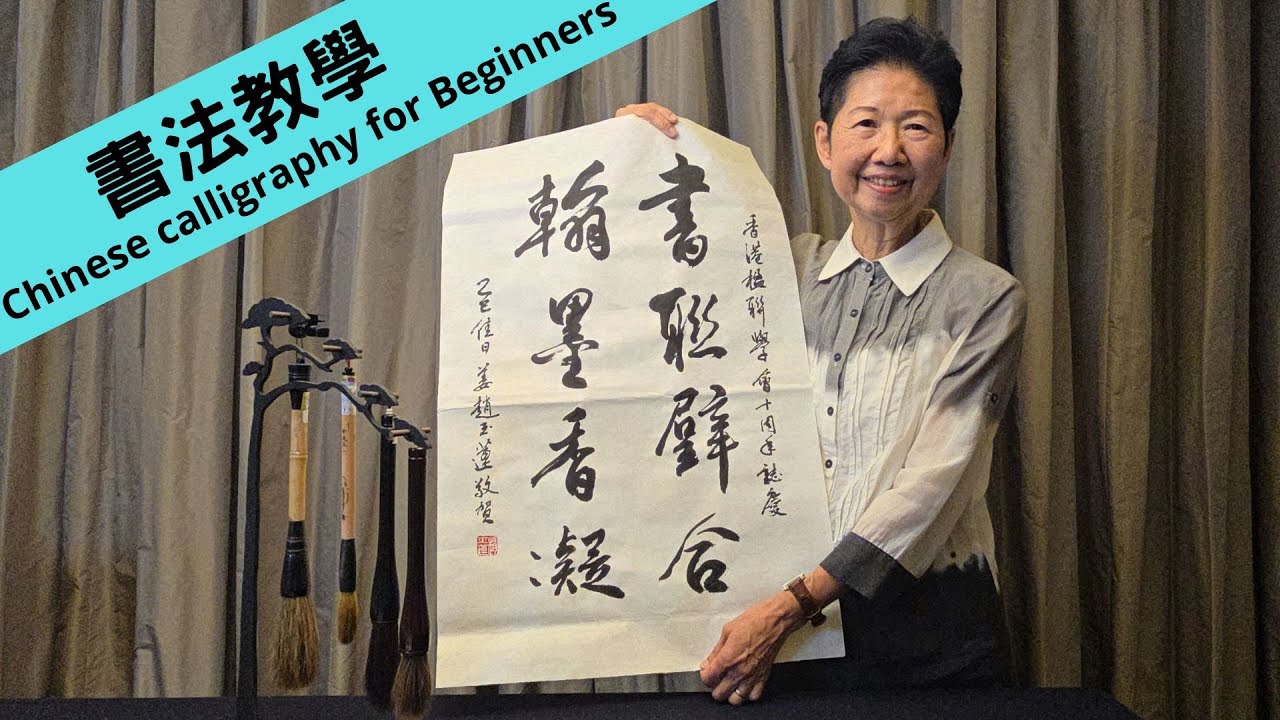 書法教學
Chinese calligraphy for Beginners
香港楹聯學會十周年誌慶
書聯璧合
翰墨香凝
乙巳佳日姜趙玉蓮敬賀